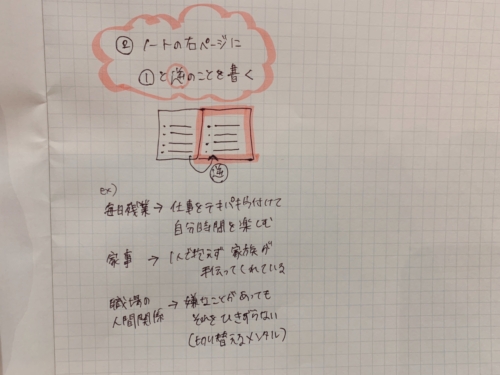 ② ノートの右ページに
①と逆のことを書く
逆
ex)
毎日残業 → 仕事をテキパキ片付けて
自分時間を楽しむ
家事 → 1人で抱えず 家族が
手伝ってくれている
職場の
人間関係 → 嫌なことがあっても
それをひきずらない
(切り替えるメンタル)